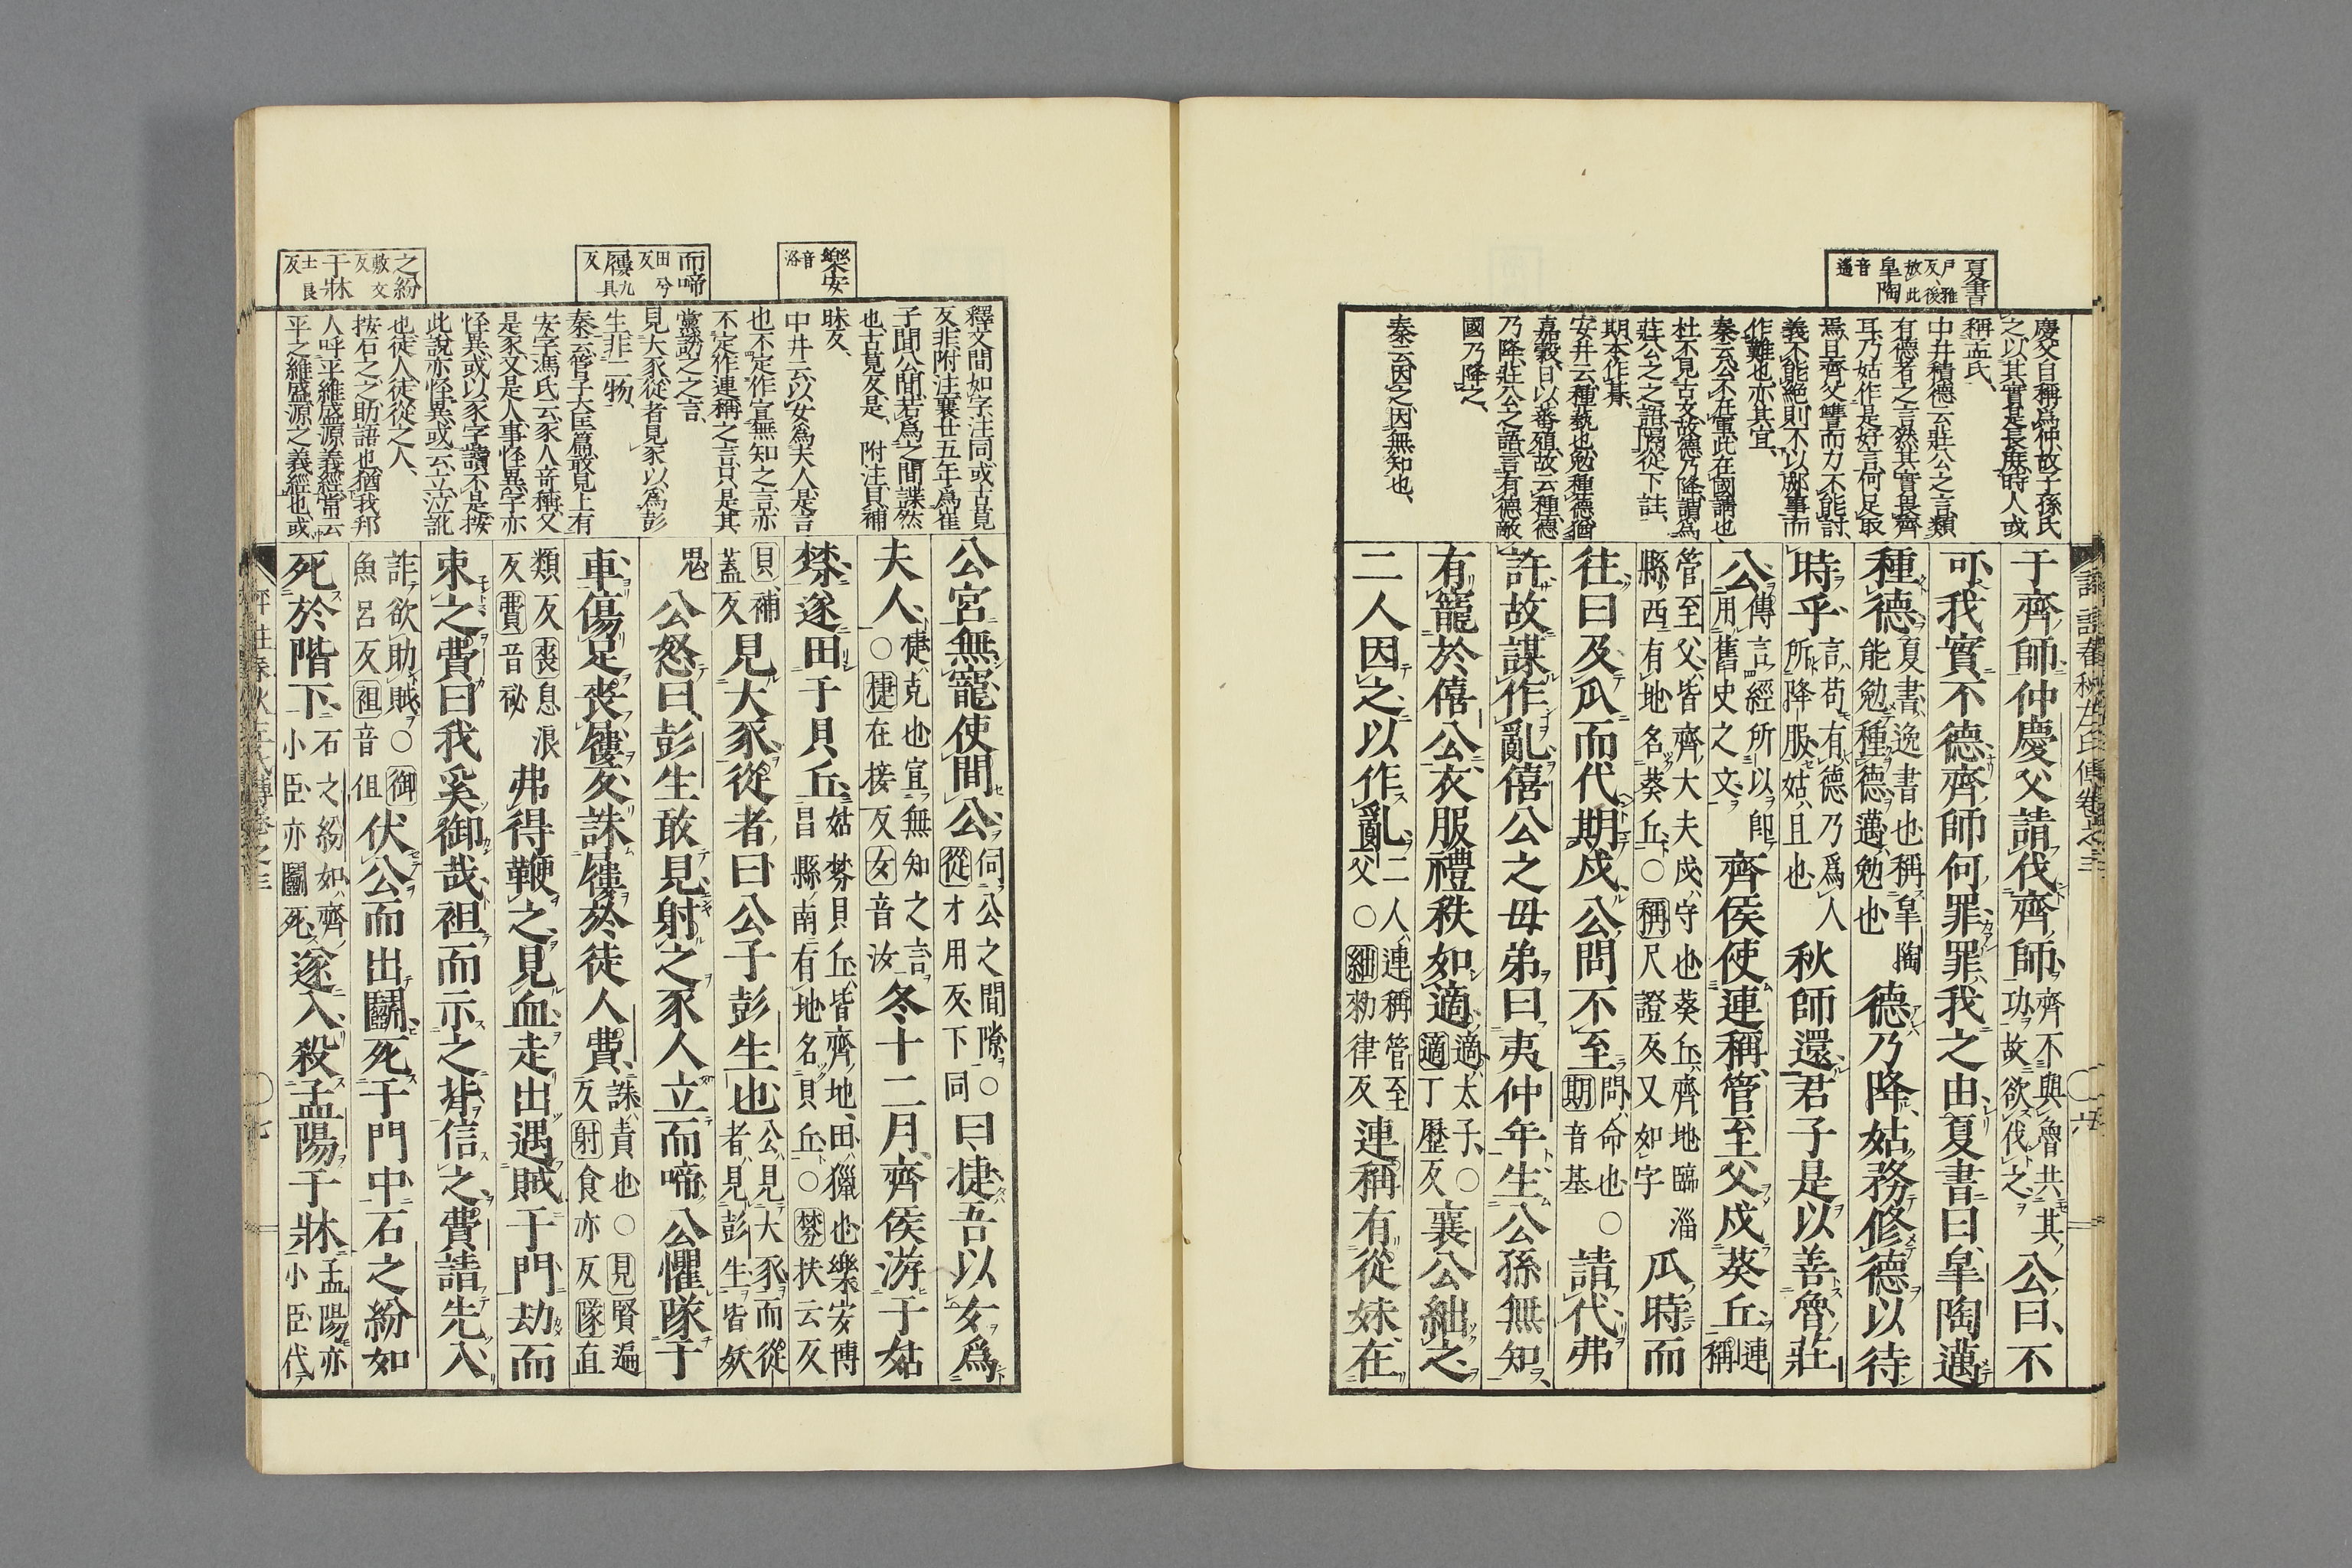 夏書
戶雅
反後
放此
皐陶
音遙
慶父自稱爲仲、故子孫氏
之以其實是長庶時人或
稱孟氏、
中井積德云莊公之言類
有德者之言然其實畏齊
耳乃姑作是好言何足取
焉且齊父讐而力不能討、
義不能絕則不以郕事而
作難也亦其宜、
秦云公不在軍此在國謂也、
杜不見古文故德乃降謂爲
莊公之之語隔從下註、
期本作朞、
安井云種蓺也勉種德猶
嘉穀日以蕃殖故云種德
乃降莊公之語言有德敵
國乃降之、
秦云因之因無知也、
于齊師仲慶父請伐齊師齊不與魯共其功故欲伐之公曰不
可我實不德齊師何罪罪我之由夏書曰皐陶邁
種德夏書逸書也稱皐陶能勉種德邁勉也德乃降姑務修德以待
時乎言苟有德乃爲人所降服姑且也秋師還君子是以善魯莊
公傳言經所以卽用舊史之文齊侯使連稱管至父戍葵丘連稱
管至父皆齊大夫戍守也葵丘齊地臨淄縣西有地名葵丘○稱尺證反又如字瓜時而
往曰及瓜而代期戍公問不至問命也○期音基請代弗
許故謀作亂僖公之母弟曰夷仲年生公孫無知
有寵於僖公衣服禮秩如適適太子○適丁歷反襄公絀之
二人因之以作亂二人連稱管至父○絀勑律反連稱有從妹在
評註春秋左氏傳卷之三
〇六
樂安
音洛
而啼
田兮反
屨
九具反
之紛
敷文反
于牀
士良反
釋文間如字注同或古莧
反非附注襄廿五年爲崔
子間公間若爲之間諜然
也古莧反是、附注貝補
昧反、
中井云以女爲夫人是言
也不定作宣無知之言亦
不定作連稱之言只是其
黨謌之之言、
見大豕從者見豕以爲彭
生非二物、
秦云管子大匡篇敢見上有
安字馮氏云豕人奇稱又
是豕又是人事怪異字亦
怪異或以豕字讀不是按
此說亦怪異或云立泣訛
也徒人徒從之人、
按石之之助語也猶我邦
人呼平維盛源義經常云
平之維盛源之義經也或
公宮無寵使間公伺公之間隙○從才用反下同曰捷吾以女爲
夫人捷克也宣無知之言○捷在接反女音汝冬十二月齊侯游于姑
棼遂田于貝丘姑棼貝丘皆齊地田獵也樂安博昌縣南有地名貝丘○棼扶云反
貝補蓋反見大豕從者曰公子彭生也公見大豕而從者見彭生皆妖
鬼公怒曰彭生敢見射之豕人立而啼公懼隊于
車傷足喪屨反誅屨於徒人費誅責也○見賢遍反射食亦反隊直
類反喪息浪反費音祕弗得鞭之見血走出遇賊于門劫而
束之費曰我奚御哉袒而示之背信之費請先入
詐欲助賊○御魚呂反袒音但伏公而出鬭死于門中石之紛如
死於階下石之紛如齊小臣亦鬭死遂入殺孟陽于牀孟陽亦小臣代
評註春秋左氏傳卷之三
〇七